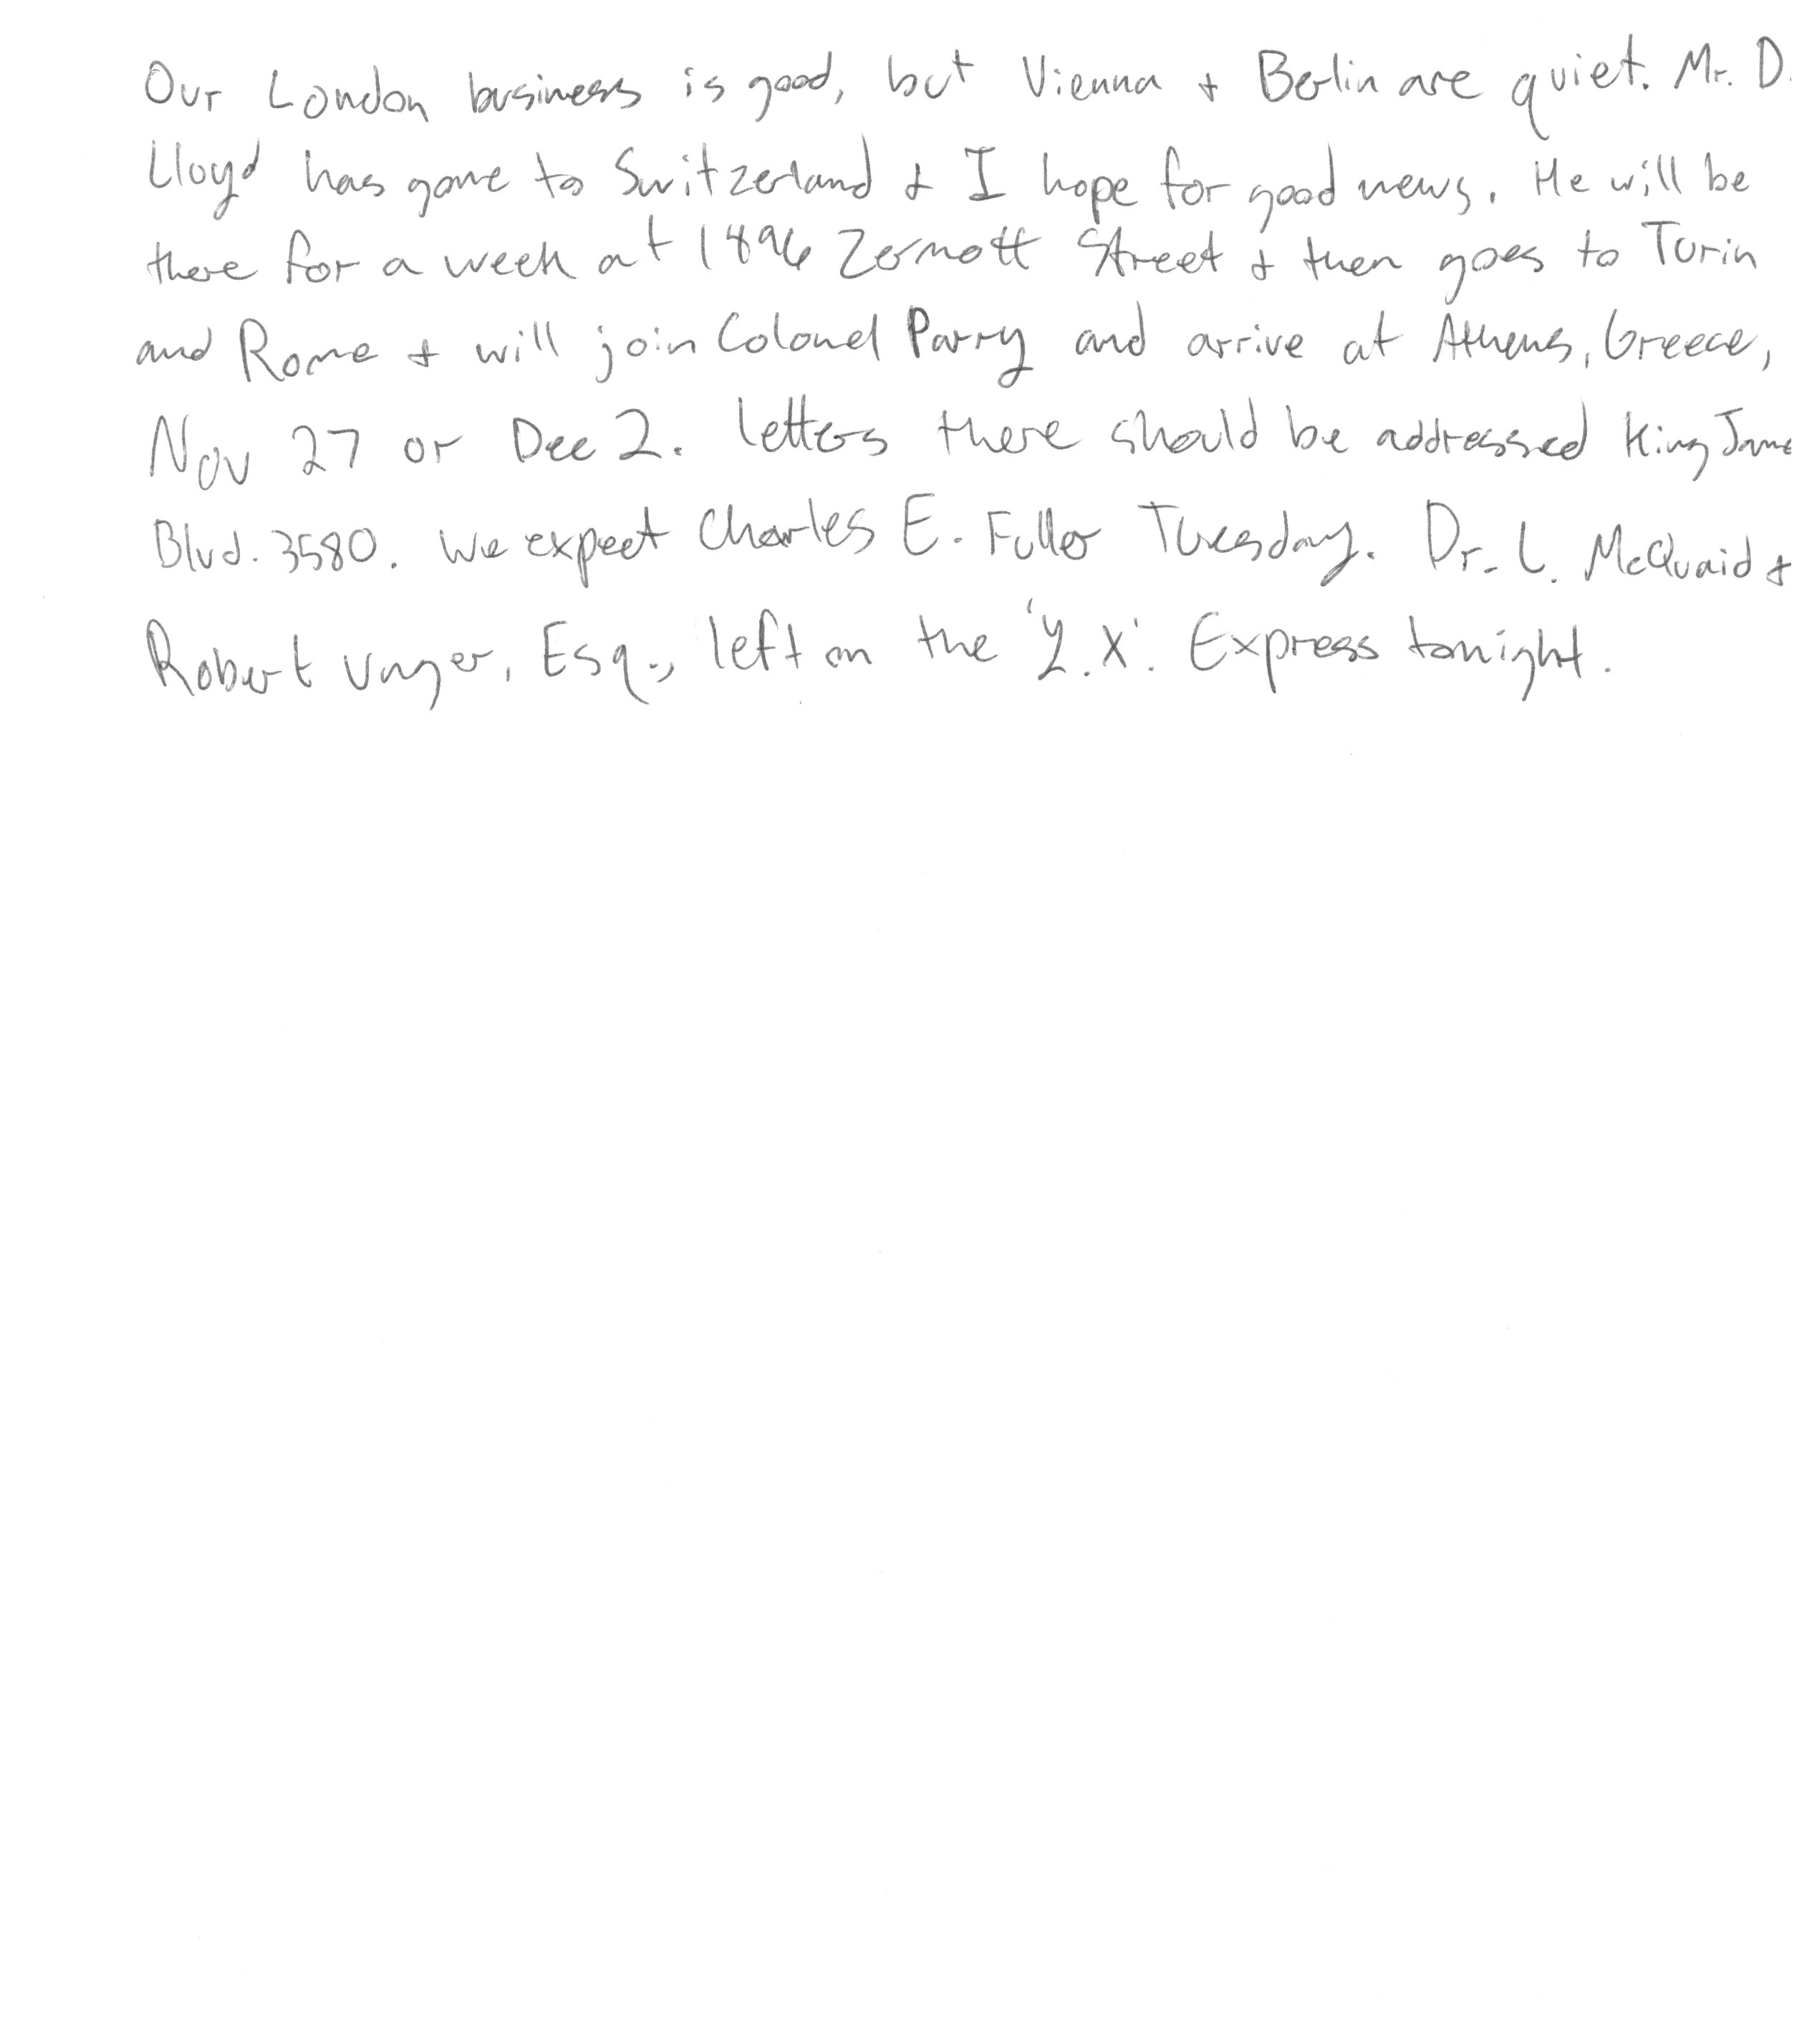 Our London business is good, but Vienna + Berlin are quiet. Mr. D.
Lloyd has gone to Switzerland + I hope for good news. He will be
there for a week at 1496 Zermott Street + then goes to Turin
and Rome + will join Colonel Parry and arrive at Athens, Greece,
Nov 27 or Dec 2. Letters there should be addressed King Jame
Blvd. 3580. We expect Charles E. Fuller Tuesday. Dr. L. McQuaid +
Robert Unger, Esq., left on the 'Y.X.' Express tonight.